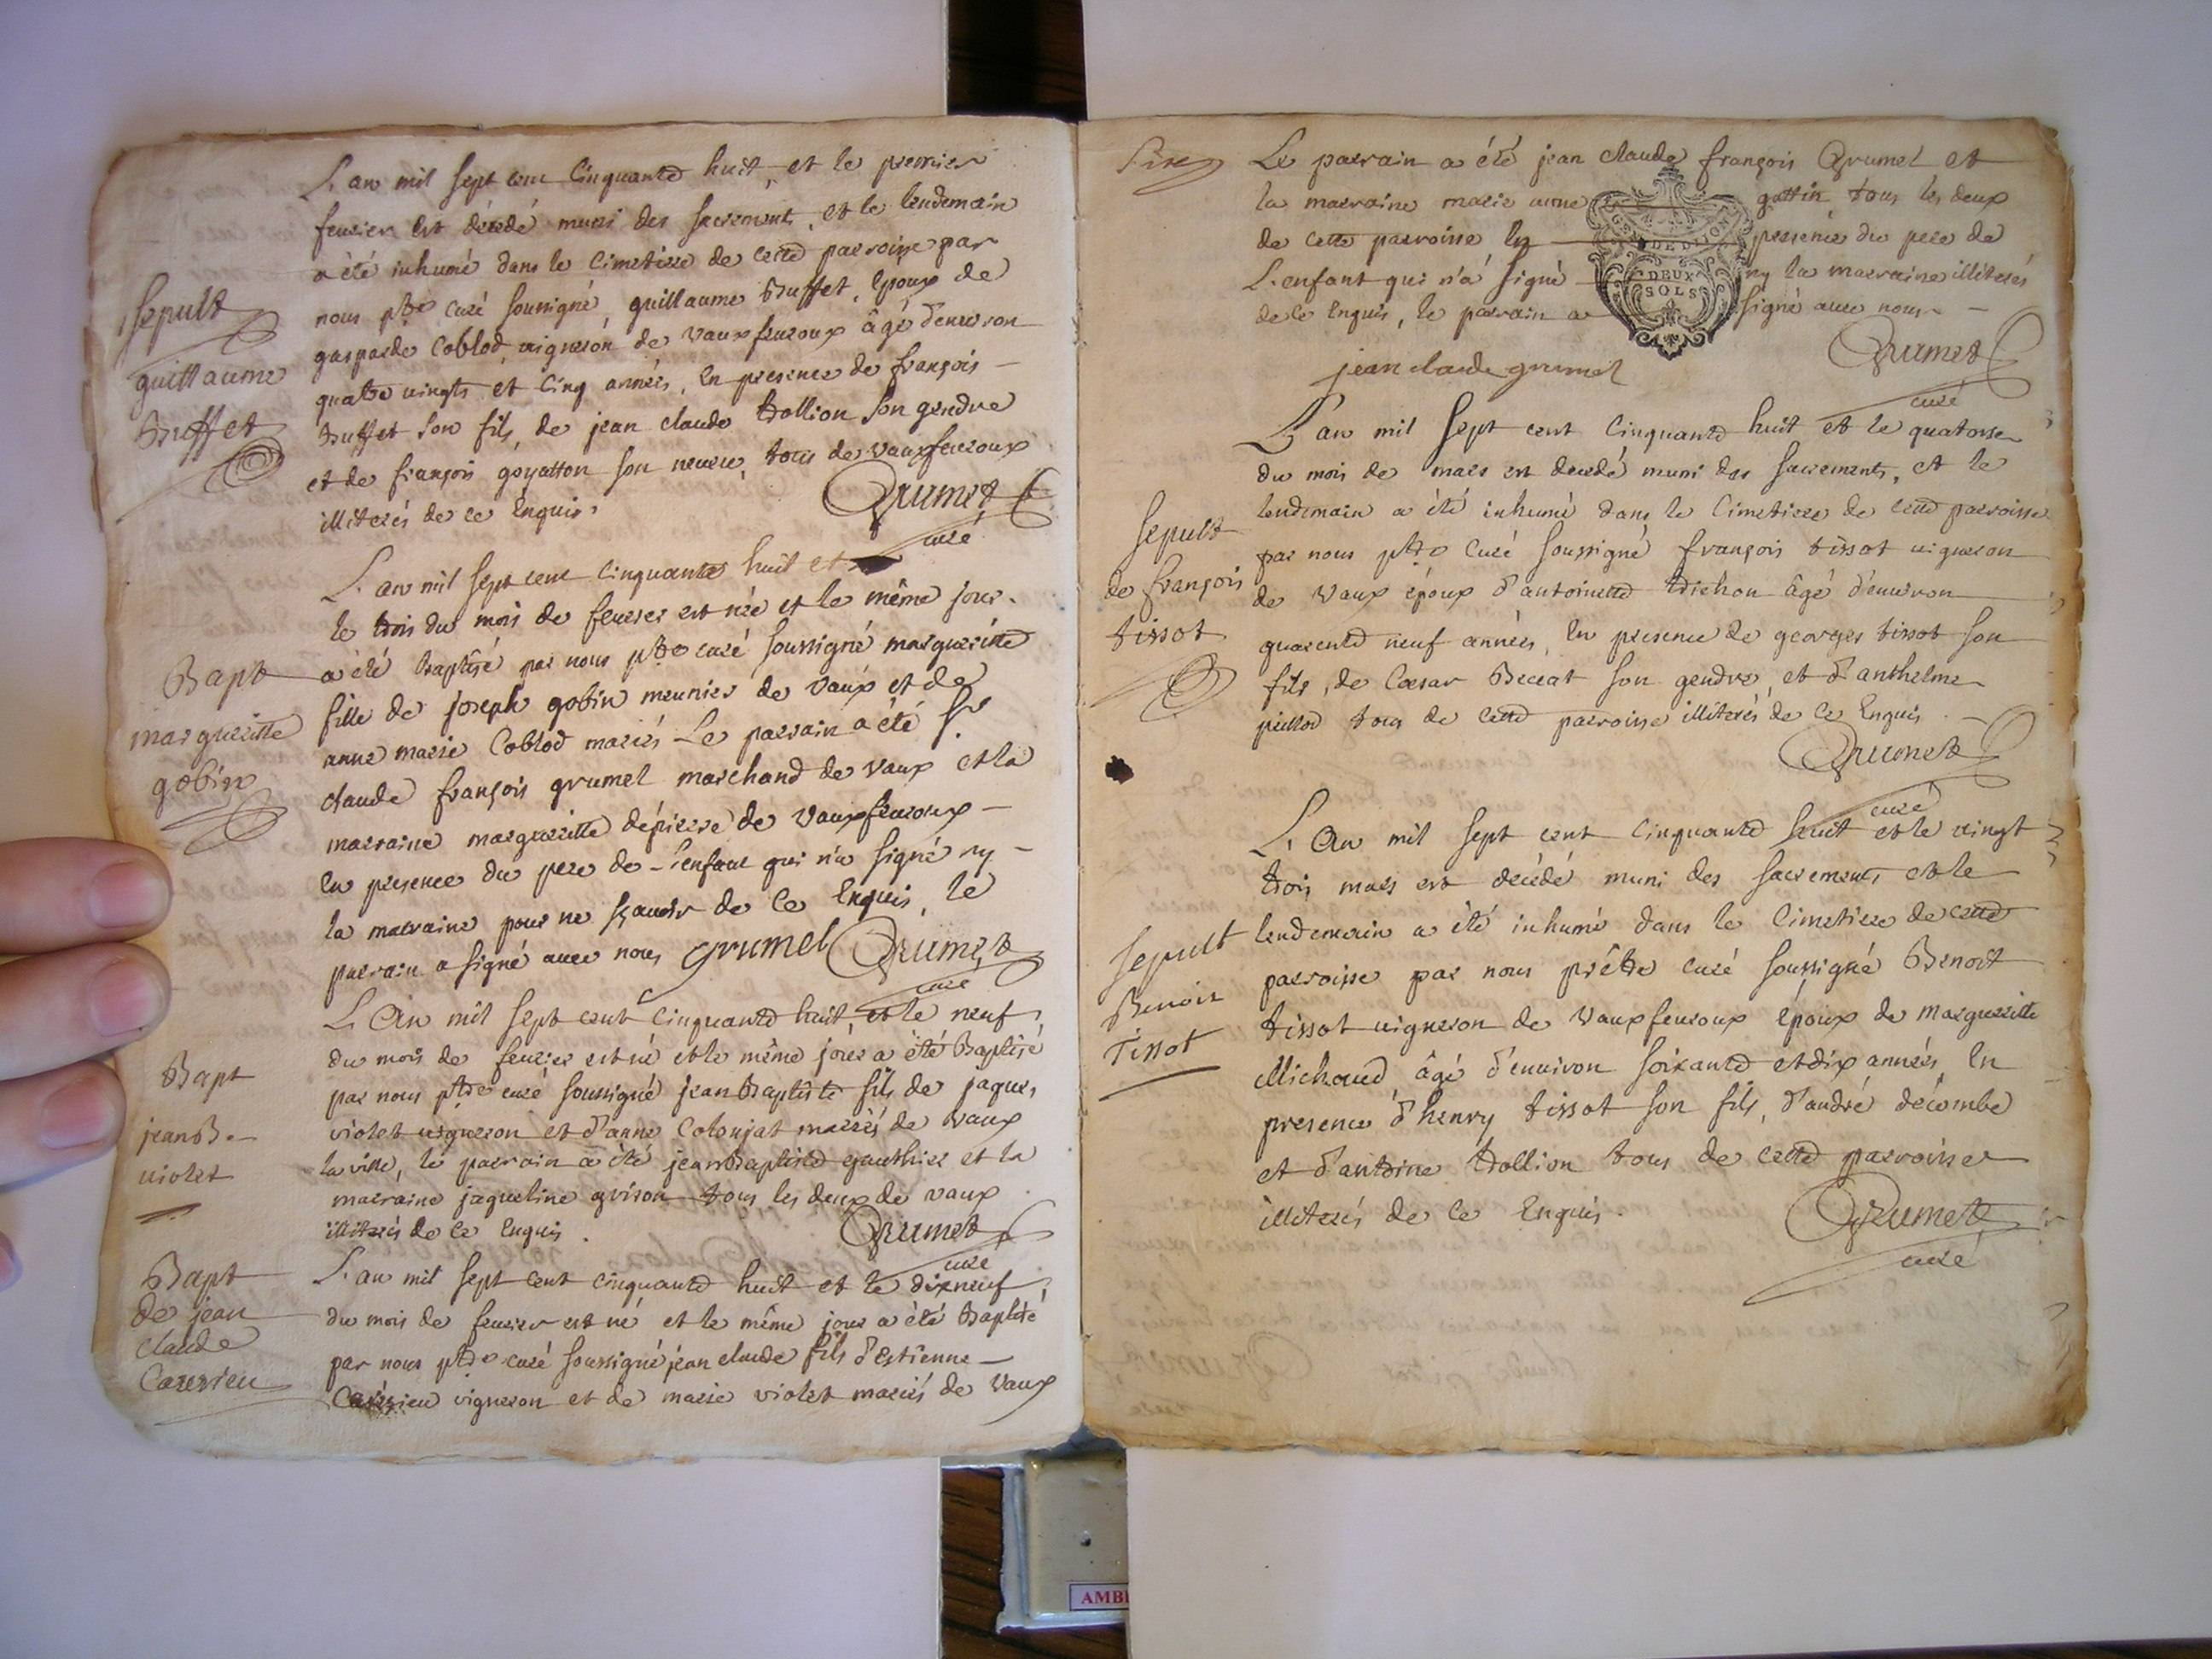 L'an mil sept cent cinquante huit, et le premier
feurier est décedé muni des sacrements, et le lendemain
a été inhumé dans le cimetiere de cette parroisse par
nous ptre curé soussigné, guillaume Buffet, epoux de
gasparde Coblod, vigneron de vaux feuroux âgé d'environ
quatre vingts et cinq années, en presence de françois
Buffet son fils, de jean claude trollion son gendre
et de françois goyatton son neueu, tous de vauxfeuroux
illiterés de ce enquis.
Grumet
curé
sepult
guillaume
Buffet
L'an mil sept cent cinquante huit et
le trois du mois de feurier est née et le même jour
a été baptisé par nous ptre curé soussigné margueritte
fille de joseph gobin meunier de vaux et de
anne marie Coblod mariés Le parrain a été sr
claude françois grumel marchand de vaux et la
marraine margueritte dépierre de vauxfeuroux
en presence du pere de l'enfant qui n'a signé ny
la marraine pour ne sçauoir de ce enquis, le
parrain a signé auec nous grumel Grumet
curé
Bapt
margueritte
gobin
L'An mil sept cent cinquante huit, et le neuf
du mois de feurier est né et le même jour a été Baptisé
par nous ptre curé soussigné jean Baptiste fils de jaques
violet uigneron et d'anne Colonjat mariés de vaux
la ville, le parrain a été jean Baptiste gauthier et la
marraine jaqueline grison tous les deux de vaux
illiterés de ce enquis.
Grumet
curé
Bapt
jean B.
uiolet
L'an mil sept cent cinquante huit et le dixneuf
du mois de feurier est né et le même jour a été Baptisé
par nous ptre curé soussigné jean claude fils d'Estienne
Carrieu vigneron et de marie violet mariés de Vaux
Bapt
de jean
claude
Le parrain a été jean claude françois Grumel et
la marraine marie anne gottin tous les deux
de cette parroisse en presence du pere de
L'enfant qui n'a signé ny la marraine illiterés
de ce enquis, le parrain a signé auec nous
jean claude grumel
Grumet
curé
DE DIJON
DEUX
SOLS
L'an mil sept cent cinquante huit et le quatorse
du mois de mars est decedé muni des sacrements, et le
lendemain a été inhumé dans le cimetiere de cette parroisse
par nous ptre curé soussigné françois tissot uigneron
de vaux époux d'antoinette trichon âgé d'enuiron
quarente neuf années, en presence de georges tissot son
fils, de Cæsar Beccat son gendre, et d'anthelme
peillod tous de cette parroisse illiterés de ce enquis
Grumet
curé
sepult
de françois
tissot
L'An mil sept cent cinquante huit et le vingt
trois mars est décédé muni des sacrements et le
lendemain a été inhumé dans le cimetiere de cette
parroisse par nous prêtre curé soussigné Benoit
tissot uigneron de vauxfeuroux époux de margueritte
Michaud, âgé d'enuiron soixante et dix années, en
presence d'henry tissot son fils, d'andré décombe
et d'antoine trollion tous de cette parroisse
illiterés de ce enquis.
Grumet
curé
sepult
Benoit
Tissot